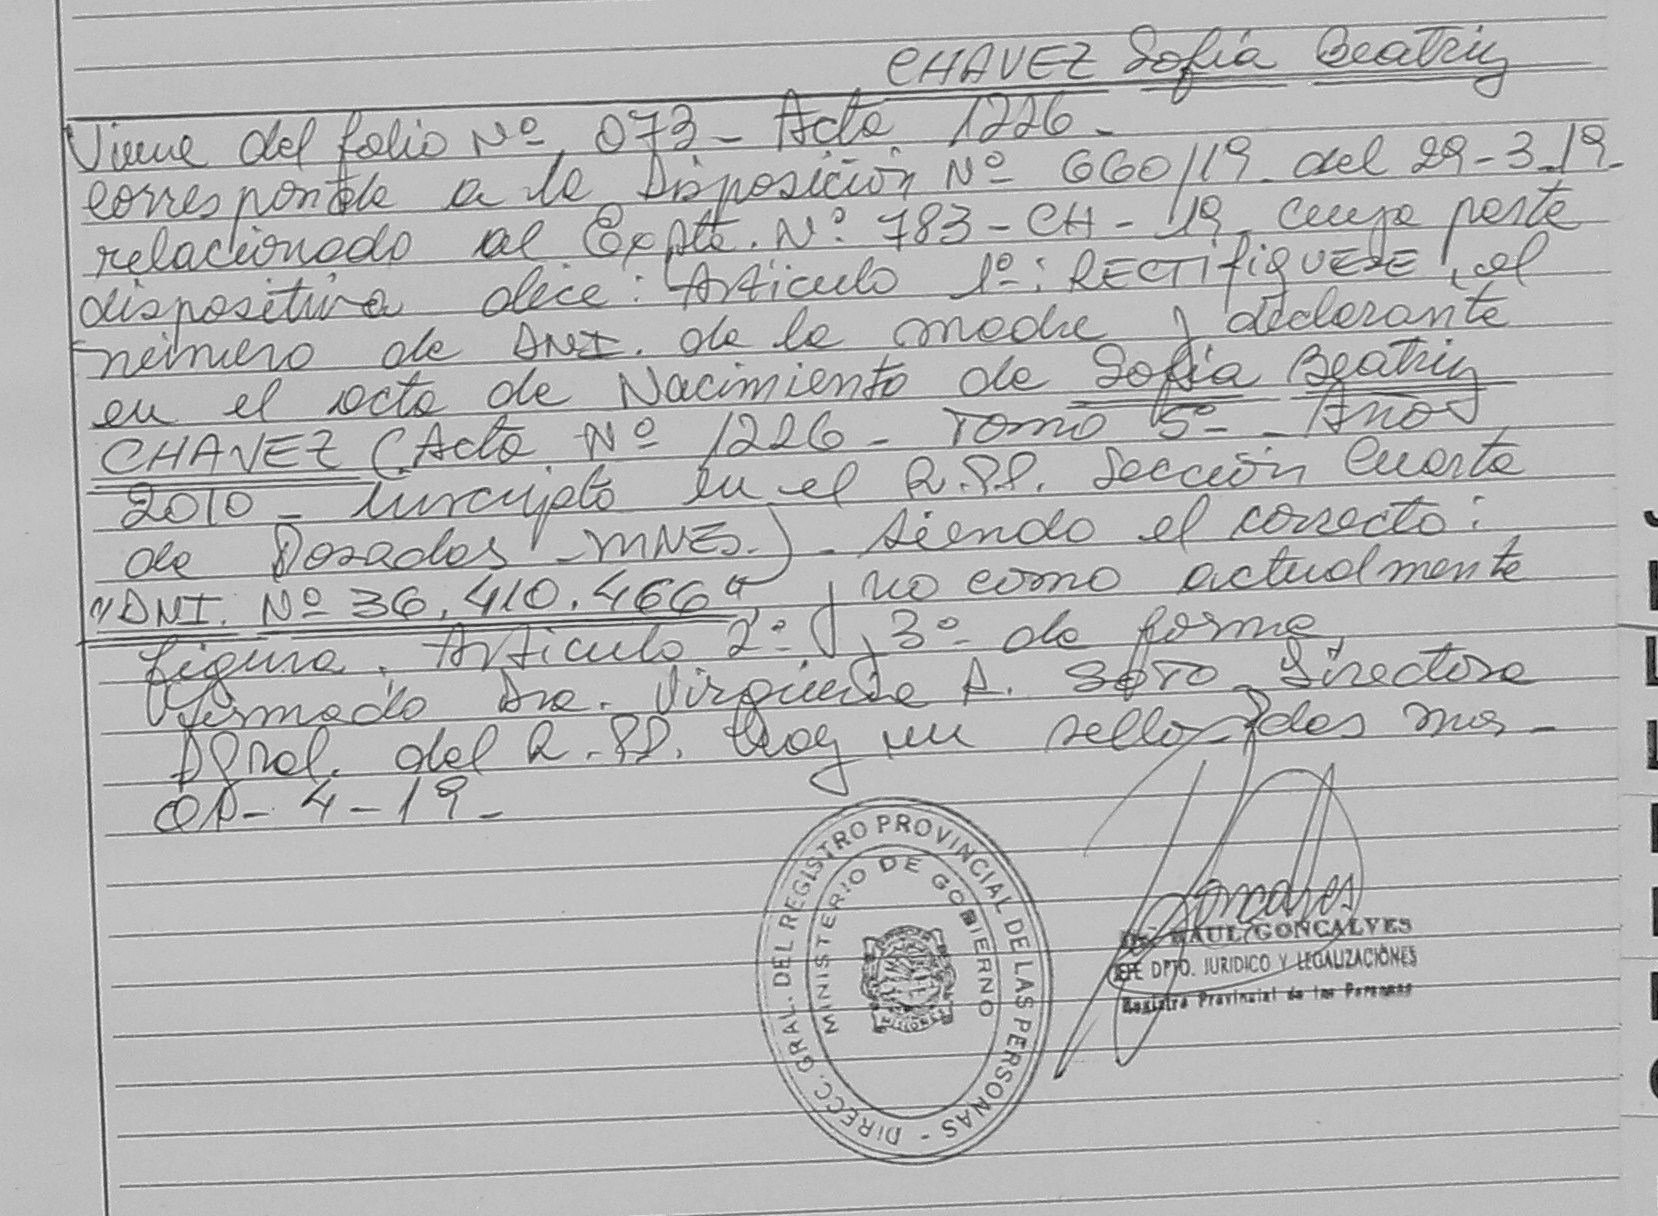 CHAVEZ Sofía Beatriz
Viene del folio Nº 073 - Acta 1226 -
correspondte a la Disposición Nº 660/19 del 29-3-19-
relacionado al Expte. Nº 783-CH-19 cuya parte
dispositiva dice: Artículo 1º: RECTIFIQUESE, el
número de DNI. de la madre y declarante
en el acta de Nacimiento de Sofía Beatriz
CHAVEZ (Acta Nº 1226 - Tomo 5º - Año
2010 - Inscripto en el R.P.P. Sección Cuarta
de Posadas - MNES.) - siendo el correcto:
"DNI. Nº 36.410.466" y no como actualmente
figura. Artículo 2º y 3º de forma,
firmado Dra. Virginia A. SOTO Directora
Gral. del R.P.P. Hay un sello. Pdas Mns -
01-4-19-
DIRECC. GRAL. DEL REGISTRO PROVINCIAL DE LAS PERSONAS -
MINISTERIO DE GOBIERNO
MISIONES
Dr. RAUL GONCALVES
JEFE DPTO. JURIDICO Y LEGALIZACIONES
Registro Provincial de las Personas